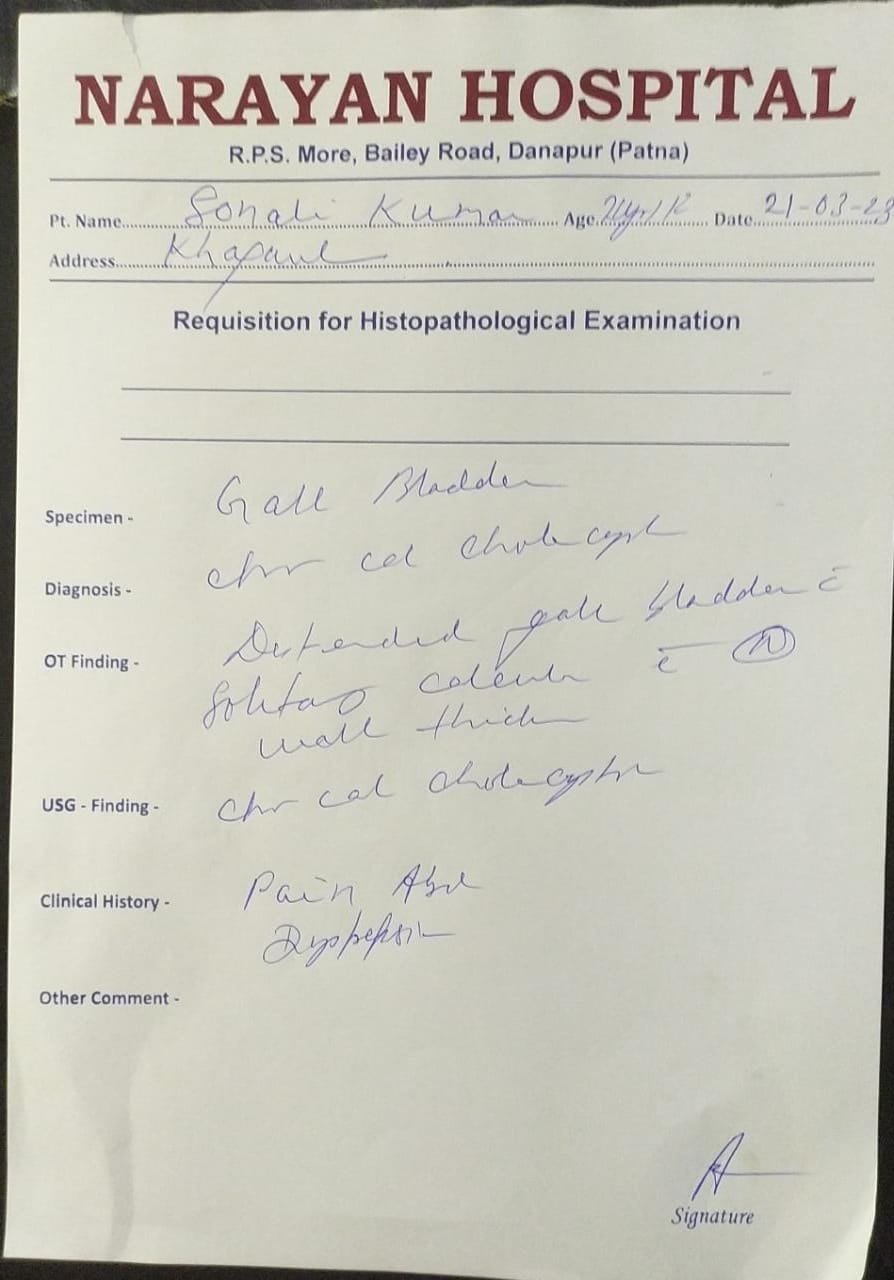 NARAYAN HOSPITAL
R.P.S. More, Bailey Road, Danapur (Patna)
Pt. Name Sonali Kumar Age Date 21-03-23
Address Khagaul
Requisition for Histopathological Examination
Specimen - Gall Bladder
Diagnosis - Chr cal Cholecyst
OT Finding - Distended gall bladder c̄
Solitary calculu c̄ (N)
wall thick
USG - Finding - Chr cal cholecystn
Clinical History - Pain Abd
Dyspepsi
Other Comment -
Signature